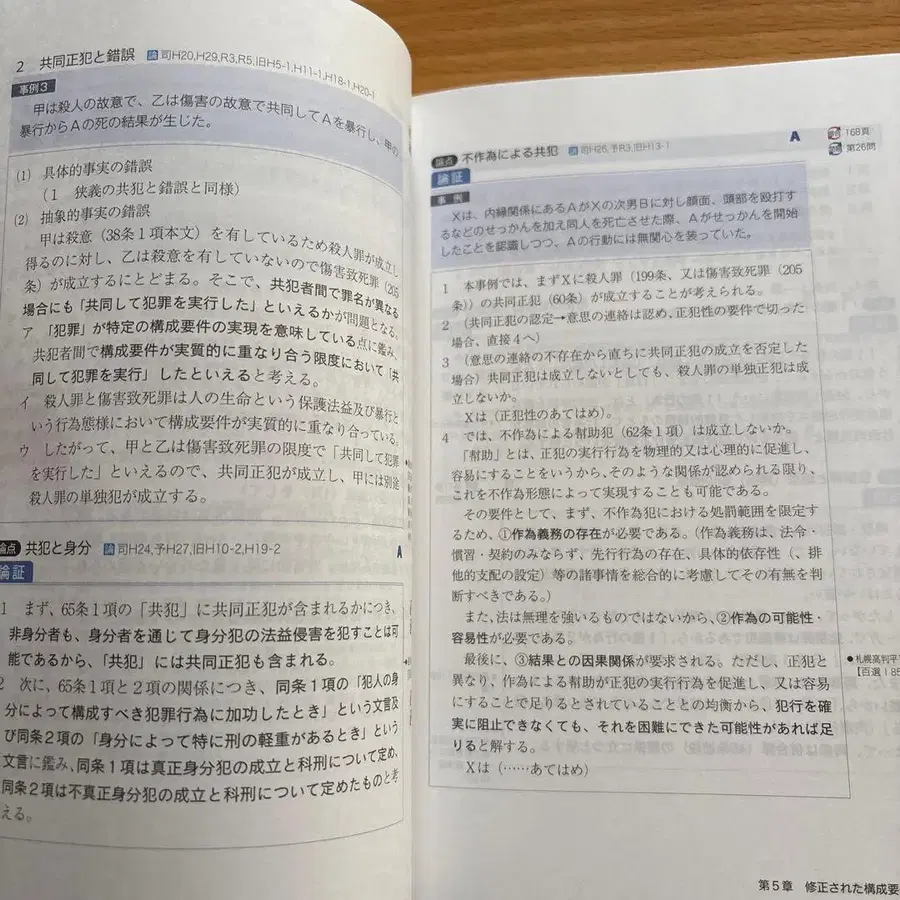 2 共同正犯と錯誤 論 司H20,H29,R3,R5,旧H5-1,H11-1,H18-1,H20-1
事例3
甲は殺人の故意で、乙は傷害の故意で共同してAを暴行し、甲の
暴行からAの死の結果が生じた。
(1) 具体的事実の錯誤
(1 狭義の共犯と錯誤と同様)
(2) 抽象的事実の錯誤
甲は殺意(38条1項本文)を有しているため殺人罪が成立し
得るのに対し、乙は殺意を有していないので傷害致死罪(205
条)が成立するにとどまる。そこで、共犯者間で罪名が異なる
場合にも「共同して犯罪を実行した」といえるかが問題となる。
ア 「犯罪」が特定の構成要件の実現を意味している点に鑑み、
共犯者間で構成要件が実質的に重なり合う限度において「共
同して犯罪を実行」したといえると考える。
イ 殺人罪と傷害致死罪は人の生命という保護法益及び暴行と
いう行為態様において構成要件が実質的に重なり合っている。
ウ したがって、甲と乙は傷害致死罪の限度で「共同して犯罪
を実行した」といえるので、共同正犯が成立し、甲には別途
殺人罪の単独犯が成立する。
論点 共犯と身分 論 司H24,予H27,旧H10-2,H19-2 A
論証
1 まず、65条1項の「共犯」に共同正犯が含まれるかにつき、
非身分者も、身分者を通じて身分犯の法益侵害を犯すことは可
能であるから、「共犯」には共同正犯も含まれる。
2 次に、65条1項と2項の関係につき、同条1項の「犯人の身
分によって構成すべき犯罪行為に加功したとき」という文言及
び同条2項の「身分によって特に刑の軽重があるとき」という
文言に鑑み、同条1項は真正身分犯の成立と科刑について定め、
同条2項は不真正身分犯の成立と科刑について定めたものと考
える。
論点 不作為による共犯 論 司H26,予R3,旧H13-1 A
168頁
第26問
論証
事例
Xは、内縁関係にあるAがXの次男Bに対し顔面、頭部を殴打す
るなどのせっかんを加え同人を死亡させた際、Aがせっかんを開始
したことを認識しつつ、Aの行動には無関心を装っていた。
1 本事例では、まずXに殺人罪(199条、又は傷害致死罪(205
条))の共同正犯(60条)が成立することが考えられる。
2 (共同正犯の認定→意思の連絡は認め、正犯性の要件で切った
場合、直接4へ)
3 (意思の連絡の不存在から直ちに共同正犯の成立を否定した
場合)共同正犯は成立しないとしても、殺人罪の単独正犯は成
立しないか。
Xは(正犯性のあてはめ)。
4 では、不作為による幇助犯(62条1項)は成立しないか。
「幇助」とは、正犯の実行行為を物理的又は心理的に促進し、
容易にすることをいうから、そのような関係が認められる限り、
これを不作為形態によって実現することも可能である。
その要件として、まず、不作為犯における処罰範囲を限定す
るため、①作為義務の存在が必要である。(作為義務は、法令・
慣習・契約のみならず、先行行為の存在、具体的依存性(、排
他的支配の設定)等の諸事情を総合的に考慮してその有無を判
断すべきである。)
また、法は無理を強いるものではないから、②作為の可能性・
容易性が必要である。
最後に、③結果との因果関係が要求される。ただし、正犯と
異なり、作為による幇助が正犯の実行行為を促進し、又は容易
にすることで足りるとされていることとの均衡から、犯行を確
実に阻止できなくても、それを困難にできた可能性があれば足
りると解する。
Xは(……あてはめ)
●札幌高判平
【百選Ⅰ85
第5章 修正された構成要